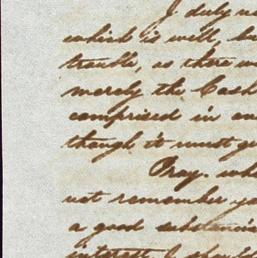 I duly
which is well, bu
trouble, as there
merely the Cash
comprised in
though it must
Pray. wh
not remember
a good substan
interest I should